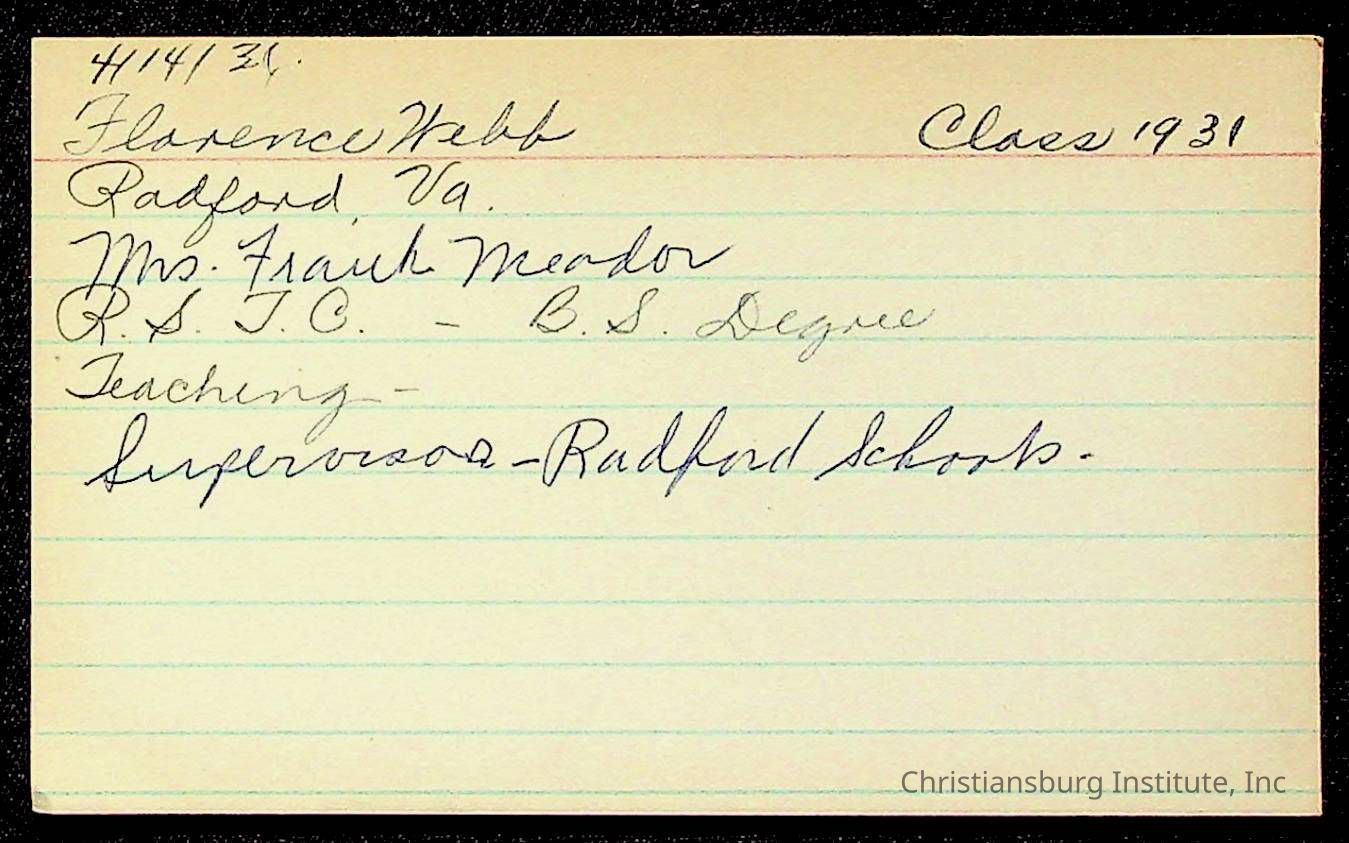 4/14/31.
Florence Webb Class 1931
Radford, Va.
Mrs. Frank Meador
R. S. T. C. - B. S. Degree
Teaching -
Supervisor - Radford Schools.
Christiansburg Institute, Inc